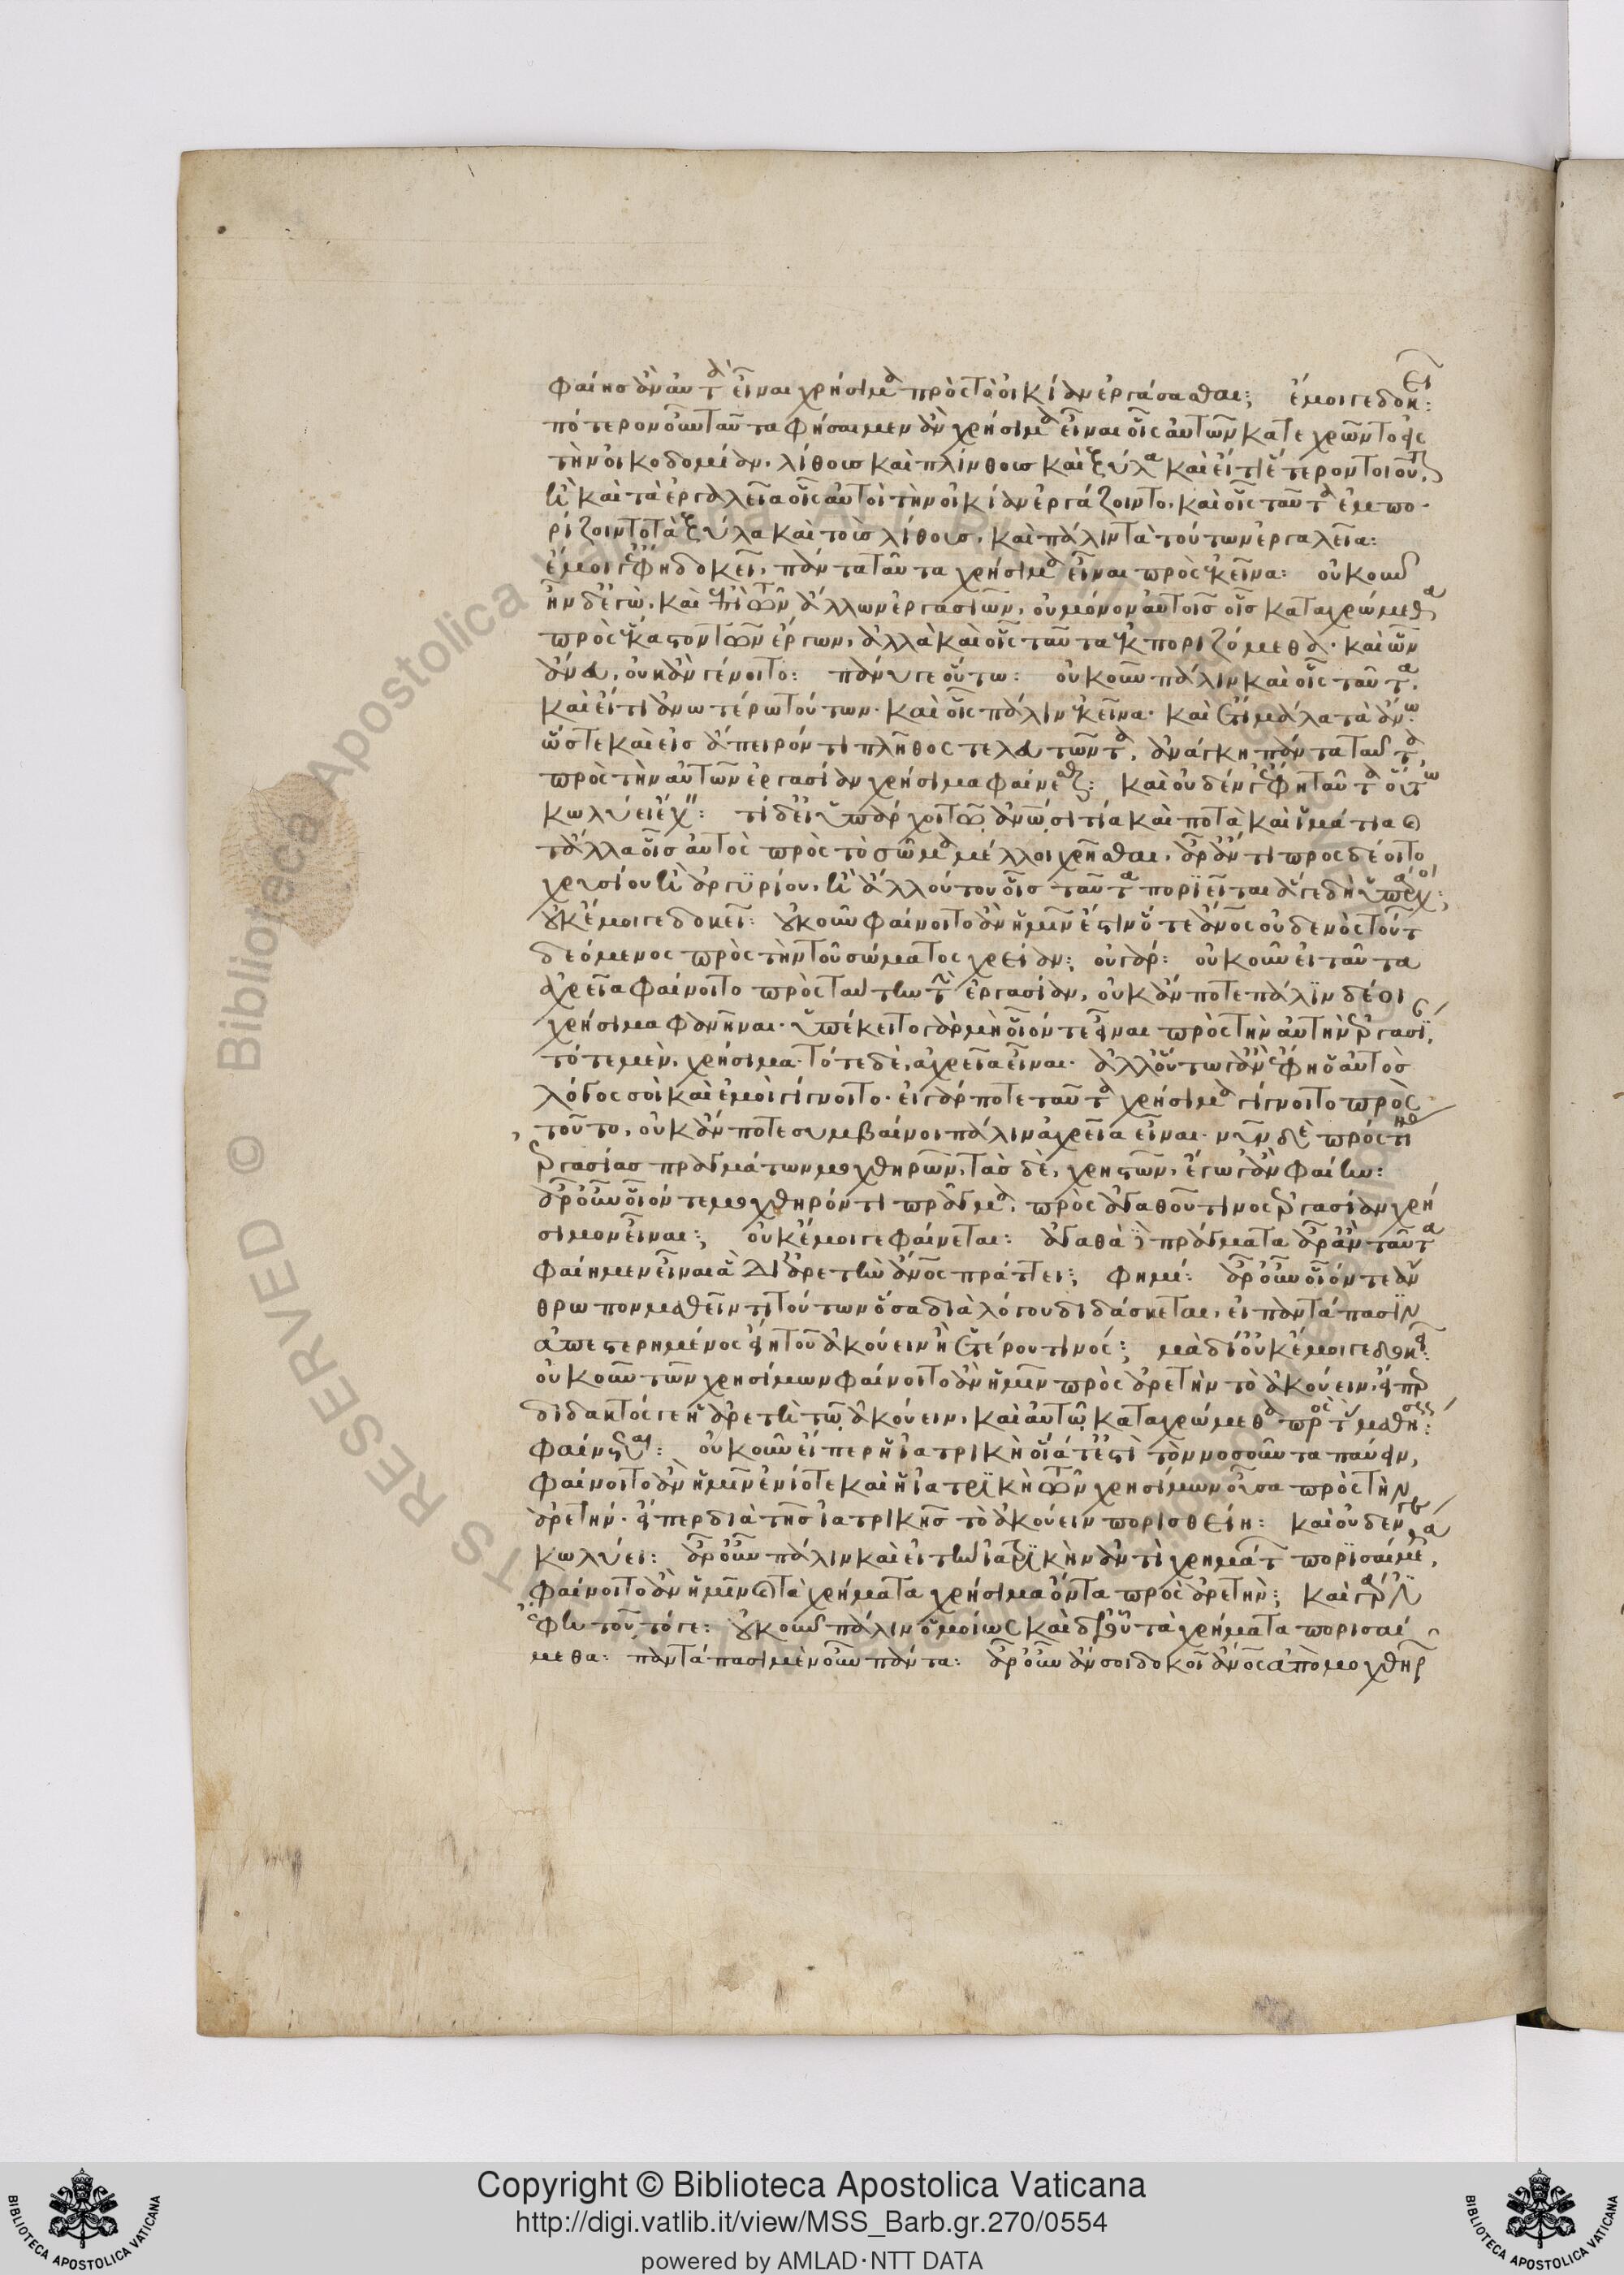 φαίης ἂν αὐτὰ εἶναι χρήσιμα πρὸς τὸ οἰκίαν ἐργάσασθαι; ἔμοιγε δοκεῖ:
πότερον οὖν ταῦτα φήσαιμεν ἂν χρήσιμα εἶναι οἷς αὐτῶν κατεχρῶντο εἰς
τὴν οἰκοδομίαν, λίθοις καὶ πλίνθοις καὶ ξύλα καὶ εἴ τι ἕτερον τοιοῦτον,
ἢ καὶ τὰ ἐργαλεῖα οἷς αὐτοὶ τὴν οἰκίαν ἐργάζοιντο, καὶ οἷς ταῦτα ἐμπο-
ρίζοιντο τὰ ξύλα καὶ τοὺς λίθους, καὶ πάλιν τὰ τούτων ἐργαλεῖα:
ἔμοιγε ἔφη δοκεῖ, πάντα ταῦτα χρήσιμα εἶναι πρὸς ἐκεῖνα: οὐκοῦν
ἦν δ' ἐγὼ, καὶ ἐπὶ τῶν ἄλλων ἐργασιῶν, οὐ μόνον αὐτοῖς οἷς καταχρώμεθα
πρὸς ἕκαστον τῶν ἔργων, ἀλλὰ καὶ οἷς ταῦτα ἐκποριζόμεθα· καὶ ὧν
ἄνευ, οὐκ ἂν γένοιτο: πάνυ γε οὕτω: οὐκοῦν πάλιν καὶ οἷς ταῦτα,
καὶ εἴ τι ἀνωτέρω τούτων· καὶ οἷς πάλιν ἐκεῖνα· καὶ ἔτι μάλα τὰ ἄνω·
ὥστε καὶ εἰς ἄπειρόν τι πλῆθος τελευτῶντα, ἀνάγκη πάντα ταῦτα,
πρὸς τὴν αὐτῶν ἐργασίαν χρήσιμα φαίνεσθαι: καὶ οὐδέν γε ἔφη ταῦτα οὕτω
κωλύει ἔχειν: τί δ' εἰ ὑπάρχοι τῷ ἀνθρώπῳ σιτία καὶ ποτὰ καὶ ἱμάτια καὶ
τἄλλα οἷς αὐτὸς πρὸς τὸ σῶμα μέλλοι χρῆσθαι, ἆρ' ἄν τι προσδέοιτο
χρυσίου ἢ ἀργυρίου, ἢ ἄλλου του οἷς ταῦτα ποριεῖται ἅ γε δὴ ὑπάρχοι;
οὐκ ἔμοιγε δοκεῖ: οὐκοῦν φαίνοιτο ἂν ἡμῖν ἔστιν ὅτε ἄνθρωπος οὐδενὸς τούτων
δεόμενος πρὸς τὴν τοῦ σώματος χρείαν; οὐ γάρ: οὐκοῦν εἰ ταῦτα
ἀχρεῖα φαίνοιτο πρὸς ταύτην τὴν ἐργασίαν, οὐκ ἄν ποτε πάλιν δέοι
χρήσιμα φανῆναι· ὑπέκειτο γὰρ μὴ οἷόν τε εἶναι πρὸς τὴν αὐτὴν ἐργασίαν,
τότε μὲν, χρήσιμα· τότε δὲ, ἀχρεῖα εἶναι· ἀλλ' οὕτω γ' ἂν ἔφη ὁ αὐτὸς
λόγος σοὶ καὶ ἐμοὶ γίγνοιτο· εἰ γάρ ποτε ταῦτα χρήσιμα γίγνοιτο πρὸς
τοῦτο, οὐκ ἄν ποτε συμβαίνοι πάλιν ἀχρεῖα εἶναι· νῦν δὲ πρός τινας
ἐργασίας πραγμάτων μοχθηρῶν, τὰς δὲ, χρηστῶν, ἔγωγ' ἂν φαίην:
ἆρ' οὖν οἷόν τε μοχθηρόν τι πρᾶγμα, πρὸς ἀγαθοῦ τινος ἐργασίαν χρή
σιμον εἶναι; οὐκ ἔμοιγε φαίνεται: ἀγαθὰ δὲ πράγματα ἆρ' ἂν ταῦτα
φαίημεν εἶναι ἃ δι' ἀρετὴν ἄνθρωπος πράττει; φημί: ἆρ' οὖν οἷόν τε ἄν
θρωπον μαθεῖν τι τούτων ὅσα διὰ λόγου διδάσκεται, εἰ παντάπασιν
ἀπεστερημένος εἴη τοῦ ἀκούειν ἢ ἑτέρου τινός; μὰ δί' οὐκ ἔμοιγε δοκεῖ:
οὐκοῦν τῶν χρησίμων φαίνοιτο ἂν ἡμῖν πρὸς ἀρετὴν τὸ ἀκούειν, εἴπερ
διδακτός γε ἡ ἀρετὴ τῷ ἀκούειν, καὶ αὐτῷ καταχρώμεθα πρὸς τὰς μαθήσεις:
φαίνεται: οὐκοῦν εἴπερ ἡ ἰατρικὴ οἵα τ' ἐστὶ τὸν νοσοῦντα παύειν,
φαίνοιτο ἂν ἡμῖν ἐνίοτε καὶ ἡ ἰατρικὴ τῶν χρησίμων οὖσα πρὸς τὴν
ἀρετὴν· εἴπερ διὰ τῆς ἰατρικῆς τὸ ἀκούειν πορισθείη: καὶ οὐδὲν
κωλύει: ἆρ' οὖν πάλιν καὶ εἰ τὴν ἰατρικὴν ἀντὶ χρημάτων πορισαίμεθα,
φαίνοιτο ἂν ἡμῖν καὶ τὰ χρήματα χρήσιμα ὄντα πρὸς ἀρετήν; καὶ γὰρ
ἔφη τοῦτό γε: οὐκοῦν πάλιν ὁμοίως καὶ δι' οὗ τὰ χρήματα πορισαί
μεθα: παντάπασι μὲν οὖν πάντα: ἆρ' οὖν ἄν σοι δοκοῖ ἄνθρωπος ἀπὸ μοχθηρ
Copyright © Biblioteca Apostolica Vaticana
http://digi.vatlib.it/view/MSS_Barb.gr.270/0554
powered by AMLAD·NTT DATA